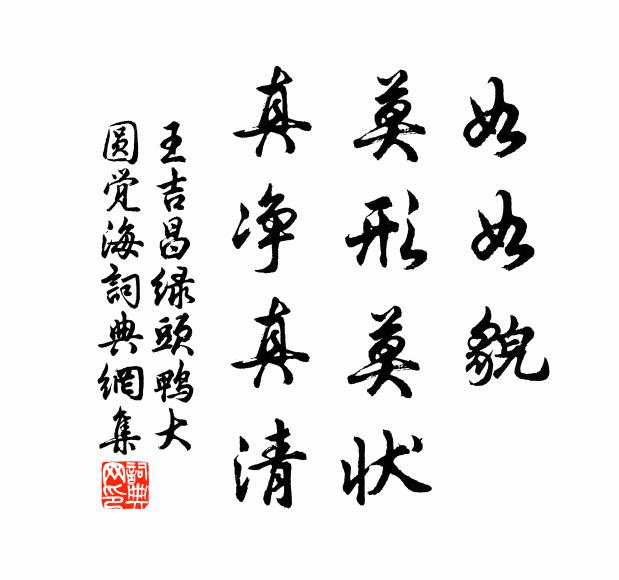 如如貌
莫形莫状
真净真清
王吉昌绿頭鸭大
圆觉海詞典網集
詞典网印